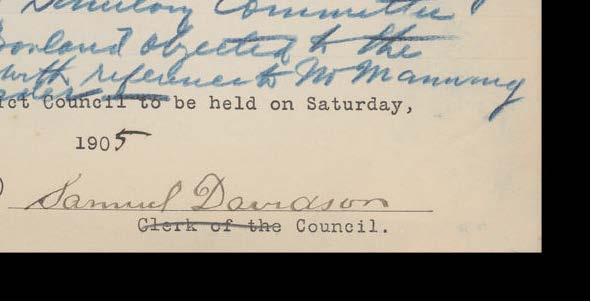 Committee
objected to the
with reference to Mr Manning
ict Council to be held on Saturday,
1905
) Samuel Davidson
Clerk of the Council.